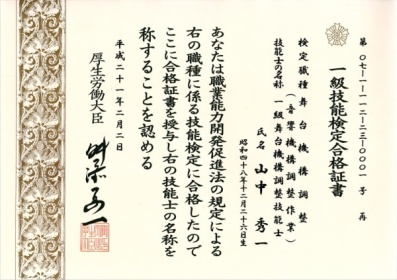 第〇七-一-一一二-二三-〇〇〇一号 再
一級技能検定合格証書
検定職種 舞台機構調整
（音響機構調整作業）
技能士の名称 一級舞台機構調整技能士
氏名 山中 秀一
昭和四十八年十二月二十六日生
あなたは職業能力開発促進法の規定による
右の職種に係る技能検定に合格したので
ここに合格証書を授与し右の技能士の名称を
称することを認める
平成二十一年二月二日
厚生労働大臣
舛添要一